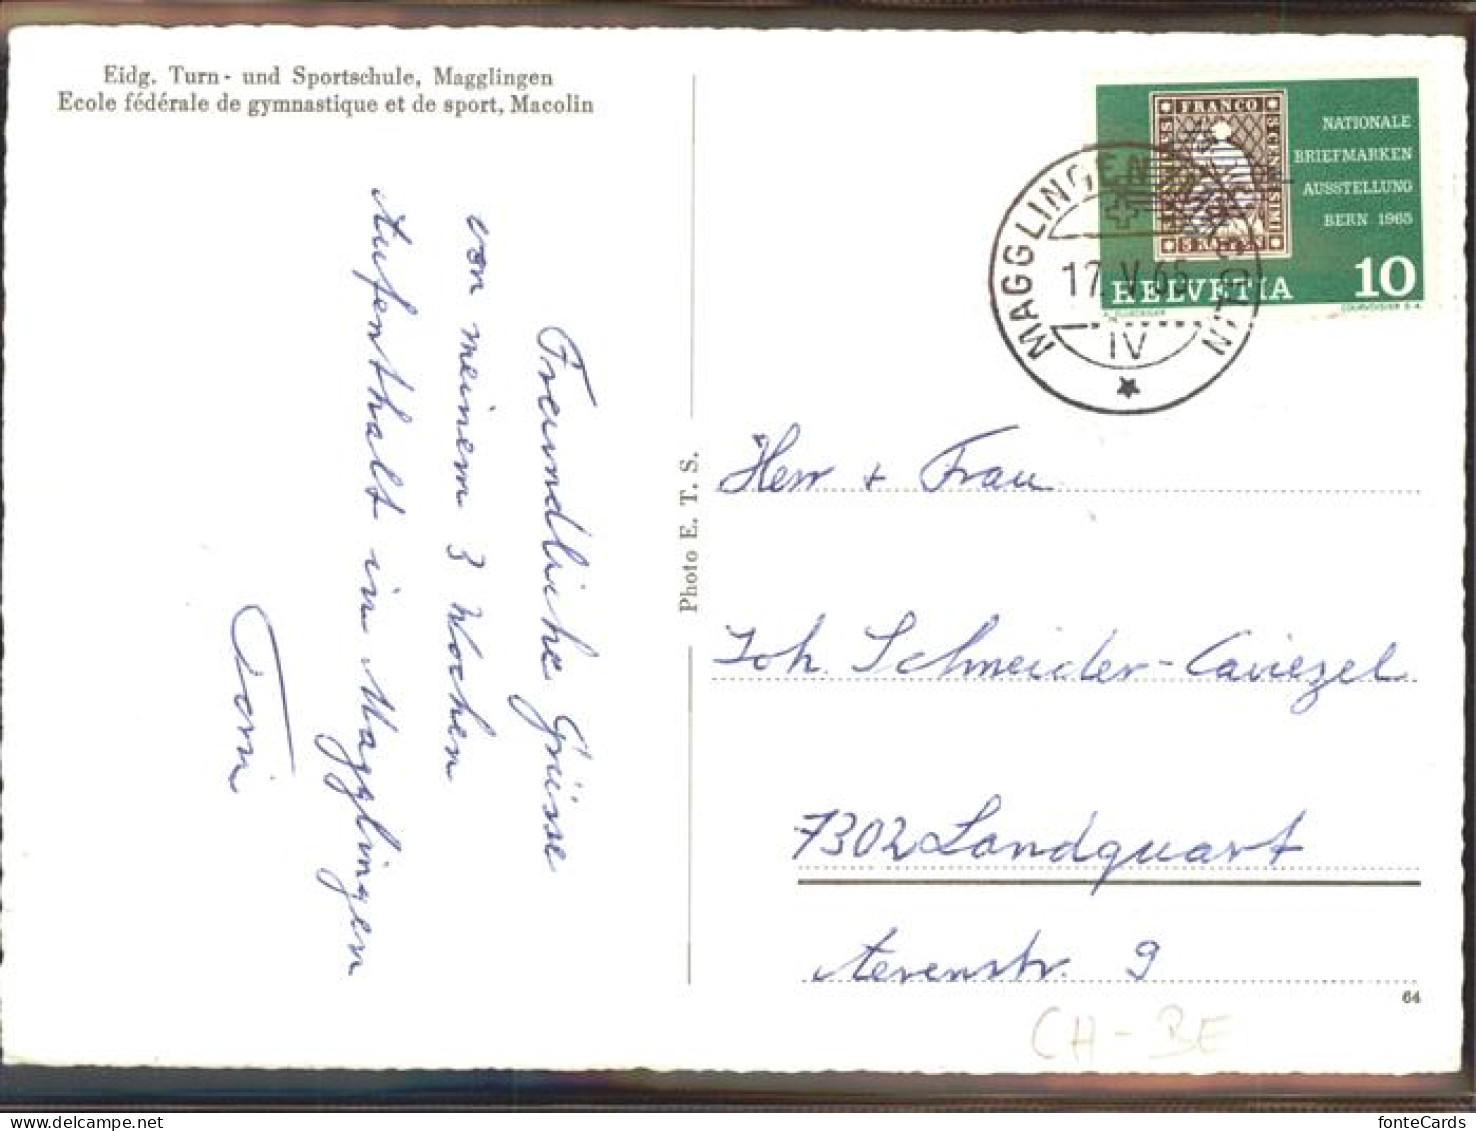 Eidg. Turn- und Sportschule, Magglingen
Ecole fédérale de gymnastique et de sport, Macolin
Freundliche Grüsse
von meinem 3 Wochen
Aufenthalt in Magglingen
Toni
Photo E. T. S.
FRANCO
NATIONALE
BRIEFMARKEN
AUSSTELLUNG
BERN 1965
HELVETIA
10
COURVOISIER S.A.
MAGGLINGEN
MACOLIN
17.V.65
IV
Herr + Frau
Joh. Schneider-Caviezel
7302 Landquart
str. 9
64
CH-BE
fonteCards